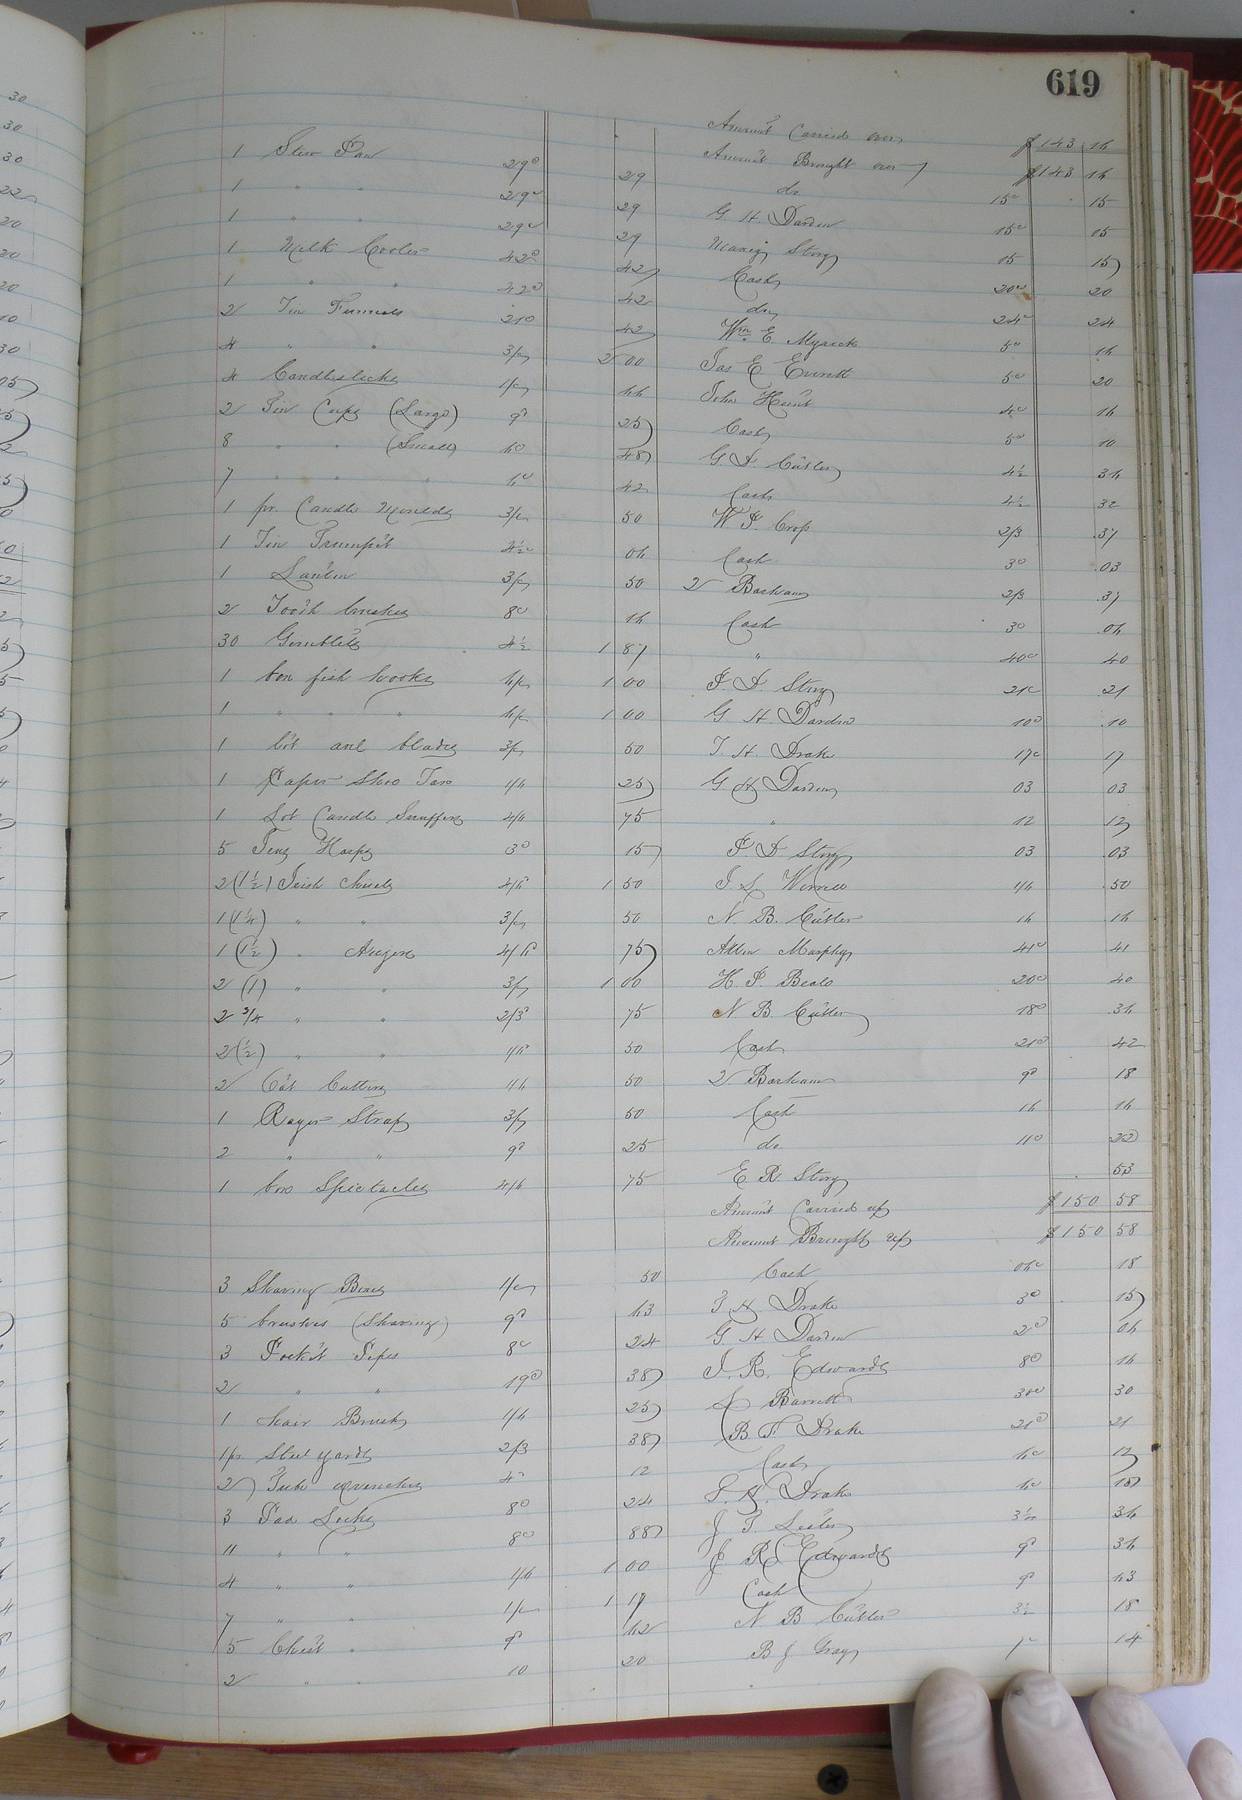 619
Amount Carried over $143 16
1 Stew Pan 29c 29 Amount Brought over $143 16
1 " " 29c 29 do 15c 15
1 " " 29c 29 G. H. Darden 15c 15
1 Milk Cooler 42c 42 Story 15 15
1 " " 42c 42 Cash 20c 20
2 Tin Funnels 21c 42 do 24c 24
4 " " 3/ 2 00 Wm. E Myrick 5c 16
4 Candlesticks 1/ 66 Jas E Everett 5c 20
2 Tin Cups (Large) 9c 25 John Hunt 4c 16
8 " " (Small) 6c 48 Cash 5c 10
7 " " " 6c 42 G D Cutler 4½ 36
1 pr. Candle Moulds 3/ 50 Cash 4½ 32
1 Tin Trumpet 4½c 06 W P. Crop 2/3 37
1 Lantin 3/ 50 Cash 3c 03
2 Tooth brushes 8c 16 Barham 2/3 37
30 Gimblets 4½ 1 87 Cash 3c 06
1 box fish hooks 6/ 1 00 " 40c 40
1 " " " 6/ 1 00 P. D. Story 21c 21
1 lot awl blades 3/ 50 G H Darden 10c 10
1 Paper Shoe Tax 1/6 25 T. H. Drake 17c 17
1 Lot Candle Snuffers 4/6 75 G H Darden 03 03
5 Jews Harps 3c 15 " 12 12
2 (1½) Irish chisels 4/6 1 50 P. D Story 03 03
1 (1¼) " " 3/ 50 1/6 50
1 (1½) " Augers 4/6 75 N. B. Cutler 16 16
2 (1) " " 3/ 1 00 Murphy 41c 41
2 3/4 " " 2/3 75 H. P. Beale 20c 40
2 (½) " " 1/6 50 N B. Cutler 18c 36
2 1/6 50 Cash 21c 42
1 Razor Strap 3/ 50 Barham 9c 18
2 " " 9c 25 Cash 16 16
1 box Spectacles 4/6 75 do 11c 22
E R. Story 53
Amount Carried up $150 58
Amount Brought up $150 58
3 Shaving Boxes 1/ 50 Cash 06c 18
5 brushes (Shaving) 9c 63 T H Drake 3c 15
3 Pocket Pipes 8c 24 G. H Darden 2c 06
2 " " 19c 38 J. R. Edwards 8c 16
1 hair Brush 1/6 25 Barrett 30c 30
1 pr Steel yards 2/3 38 B. F. Drake 21c 21
2 4c 12 Cash 6c 12
3 Pad Locks 8c 24 Drake 6c 18
11 " " 8c 88 J T. 3½ 36
4 " " 1/6 1 00 J R. Edwards 9c 36
7 " " 1/ 1 17 Cash 9c 63
5 Chest " 9c 62 N B Cutler 3½ 18
2 " " 10 20 B J Gray 7c 14